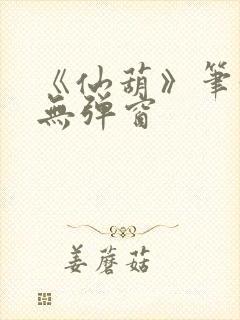 《仙葫》筆
無彈窗
姜蘑菇